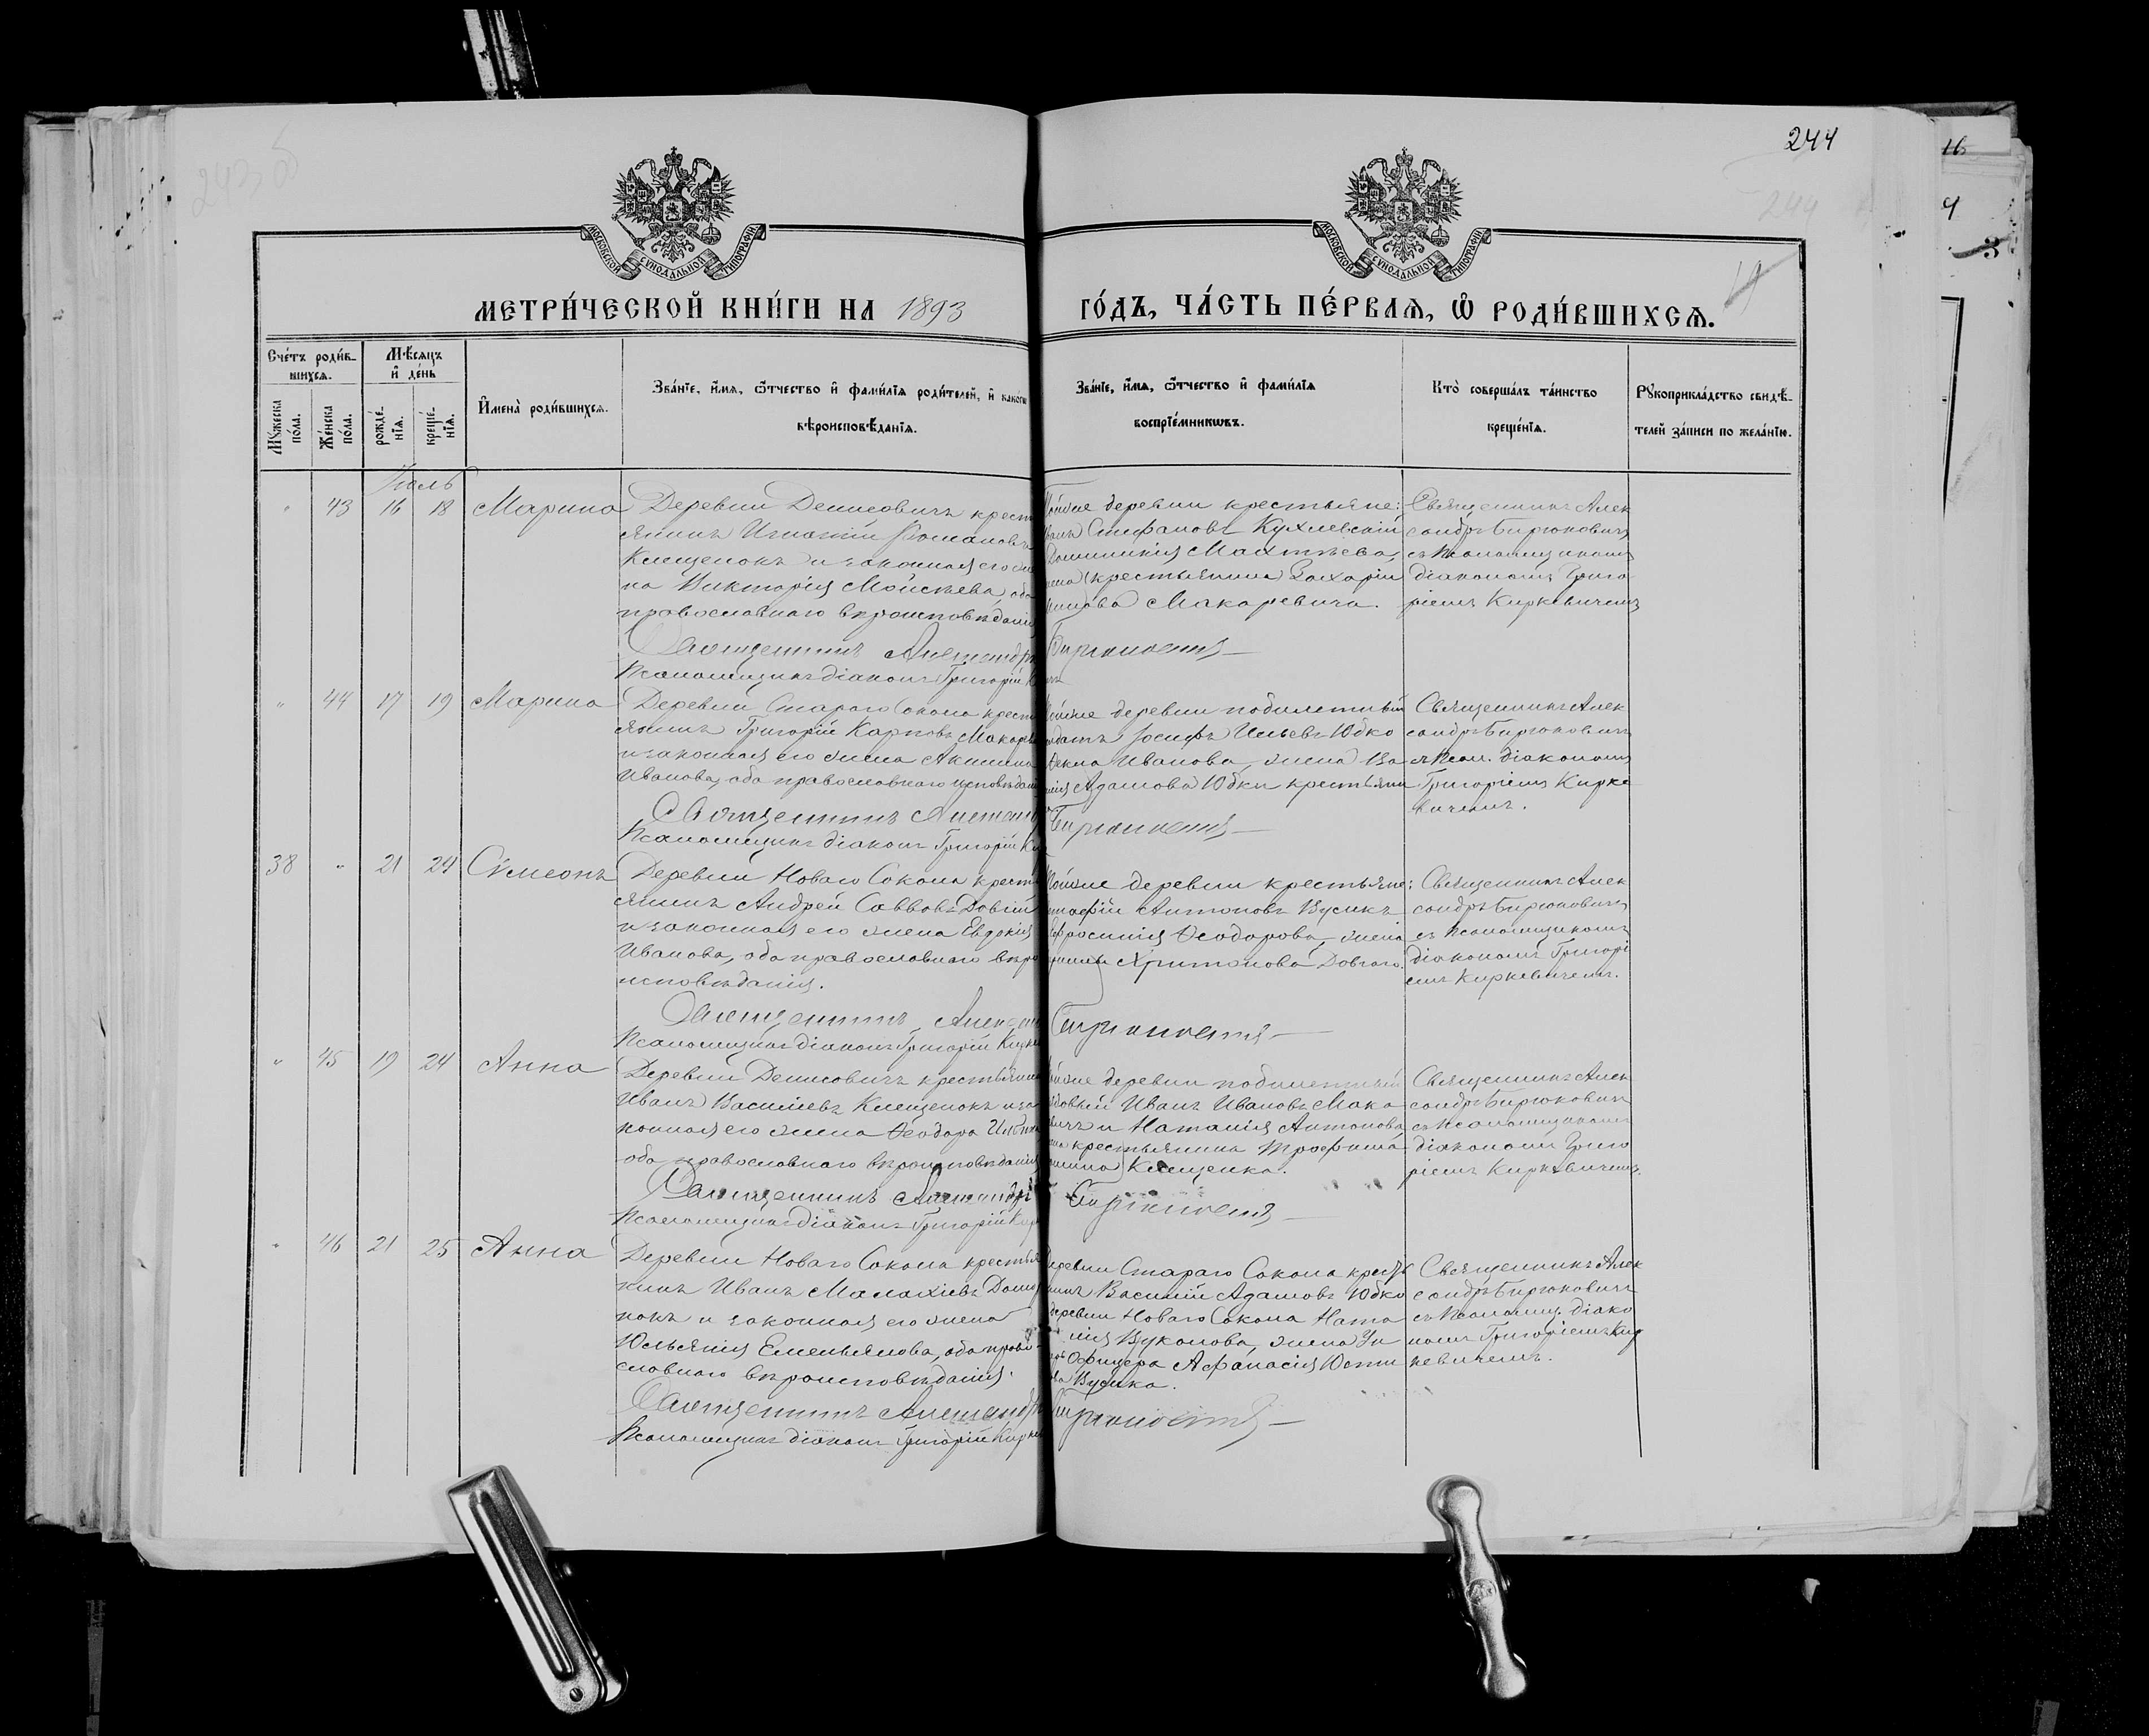 244
243 об
244
МОСКОВСКОЙ СѴНОДАЛЬНОЙ ТИПОГРАФІИ
МОСКОВСКОЙ СѴНОДАЛЬНОЙ ТИПОГРАФІИ
МЕТРИ́ЧЕСКОЙ КНИ́ГИ НА 1893 ГО́ДЪ, ЧА́СТЬ ПЕ́РВАѦ, Ѡ҆ РОДИ́ВШИХСѦ.
Сче́тъ роди́в-
шихсѧ.
Мѣ́сѧцъ
и҆ де́нь
Мꙋ́жеска
по́ла.
Же́нска
по́ла.
рожде́-
нїѧ.
креще́-
нїѧ.
И҆мена̀ роди́вшихсѧ.
Зва́нїе, и҆́мѧ, ѻ҆́тчество и҆ фами́лїѧ роди́телей, и҆ како́гѡ
вѣроисповѣ́данїѧ.
Зва́нїе, и҆́мѧ, ѻ҆́тчество и҆ фами́лїѧ
воспрїе́мникѡвъ.
Кто̀ соверша́лъ та́инство
креще́нїѧ.
Рꙋкоприкла́дство свидѣ́-
телей за́писи по жела́нїю.
Іюль
" 43 16 18 Марина
Деревни Денисовичъ крест
янинъ Игнатій Романовъ
Клещенокъ и законная его же
на Викторія Моисѣева, оба
православнаго вѣроисповѣданія
Священникъ Александръ
Псаломщикъ діаконъ Григорій
деревни крестьяне:
Стефановъ Кухлевскій
Домникія Матѳѣева,
крестьянина Захарія
Макаревича.
Бирюковичъ
Священникъ Алек
сандръ Бирюковичъ
съ Псаломщикомъ
діакономъ Григо
ріемъ Киркевичемъ
" 44 17 19 Марина
Деревни Стараго Сокола крест
янинъ Григорій Карповъ Макаре
и законная его жена Акилина
Иванова, оба православнаго исповѣдан
Священникъ Алексан
Псаломщикъ діаконъ Григорій Ки
деревни побилетный
Іосифъ Ильевъ Юбко
Ѳекла Иванова, жена Ва
Адамова Юбки крестьяни
Бирюковичъ
Священникъ Алек
сандръ Бирюковичъ
съ Псал. діакономъ
Григоріемъ Кирке
вичемъ.
38 " 21 24 Сѵмеонъ
Деревни Новаго Сокола крест
янинъ Андрей Саввовъ Довгій
и законная его жена Евдокія
Иванова, оба православнаго вѣро
исповѣданія.
Священникъ Алексан
Псаломщикъ діаконъ Григорій Кирке
деревни крестьяне:
Антоновъ Вусикъ
Ефросинія Ѳеодорова, жена
Харитонова Довгаго.
Бирюковичъ
Священникъ Алек
сандръ Бирюковичъ
съ Псаломщикомъ
діакономъ Григорі
емъ Киркевичемъ.
" 45 19 24 Анна
Деревни Денисовичъ крестьянинъ
Иванъ Василіевъ Клещенокъ и за
конная его жена Ѳеодора
оба православнаго вѣроисповѣданія
Священникъ Александръ
Псаломщикъ діаконъ Григорій Кир
деревни побилетный
Иванъ Ивановъ Мака
вичъ и Наталія Антонова
крестьянина Трофима
Клещенка.
Бирюковичъ
Священникъ Алек
сандръ Бирюковичъ
съ Псаломщикомъ
діакономъ Григо
ріемъ Киркевичемъ.
" 46 21 25 Анна
Деревни Новаго Сокола крестья
нинъ Иванъ Малахіевъ
и законная его жена
Юльянія Емельянова, оба право-
славнаго вѣроисповѣданія.
Священникъ Александръ
Псаломщикъ діаконъ Григорій Кирке
деревни Стараго Сокола кресть
нинъ Василій Адамовъ Юбко
деревни Новаго Сокола Ната
лія Вуколова, жена Ун
Офицера Аѳанасія Юсти
Вусика.
Бирюковичъ
Священникъ Алек
сандръ Бирюковичъ
съ Псаломщ. діако
номъ Григоріемъ Кир
кевичемъ.